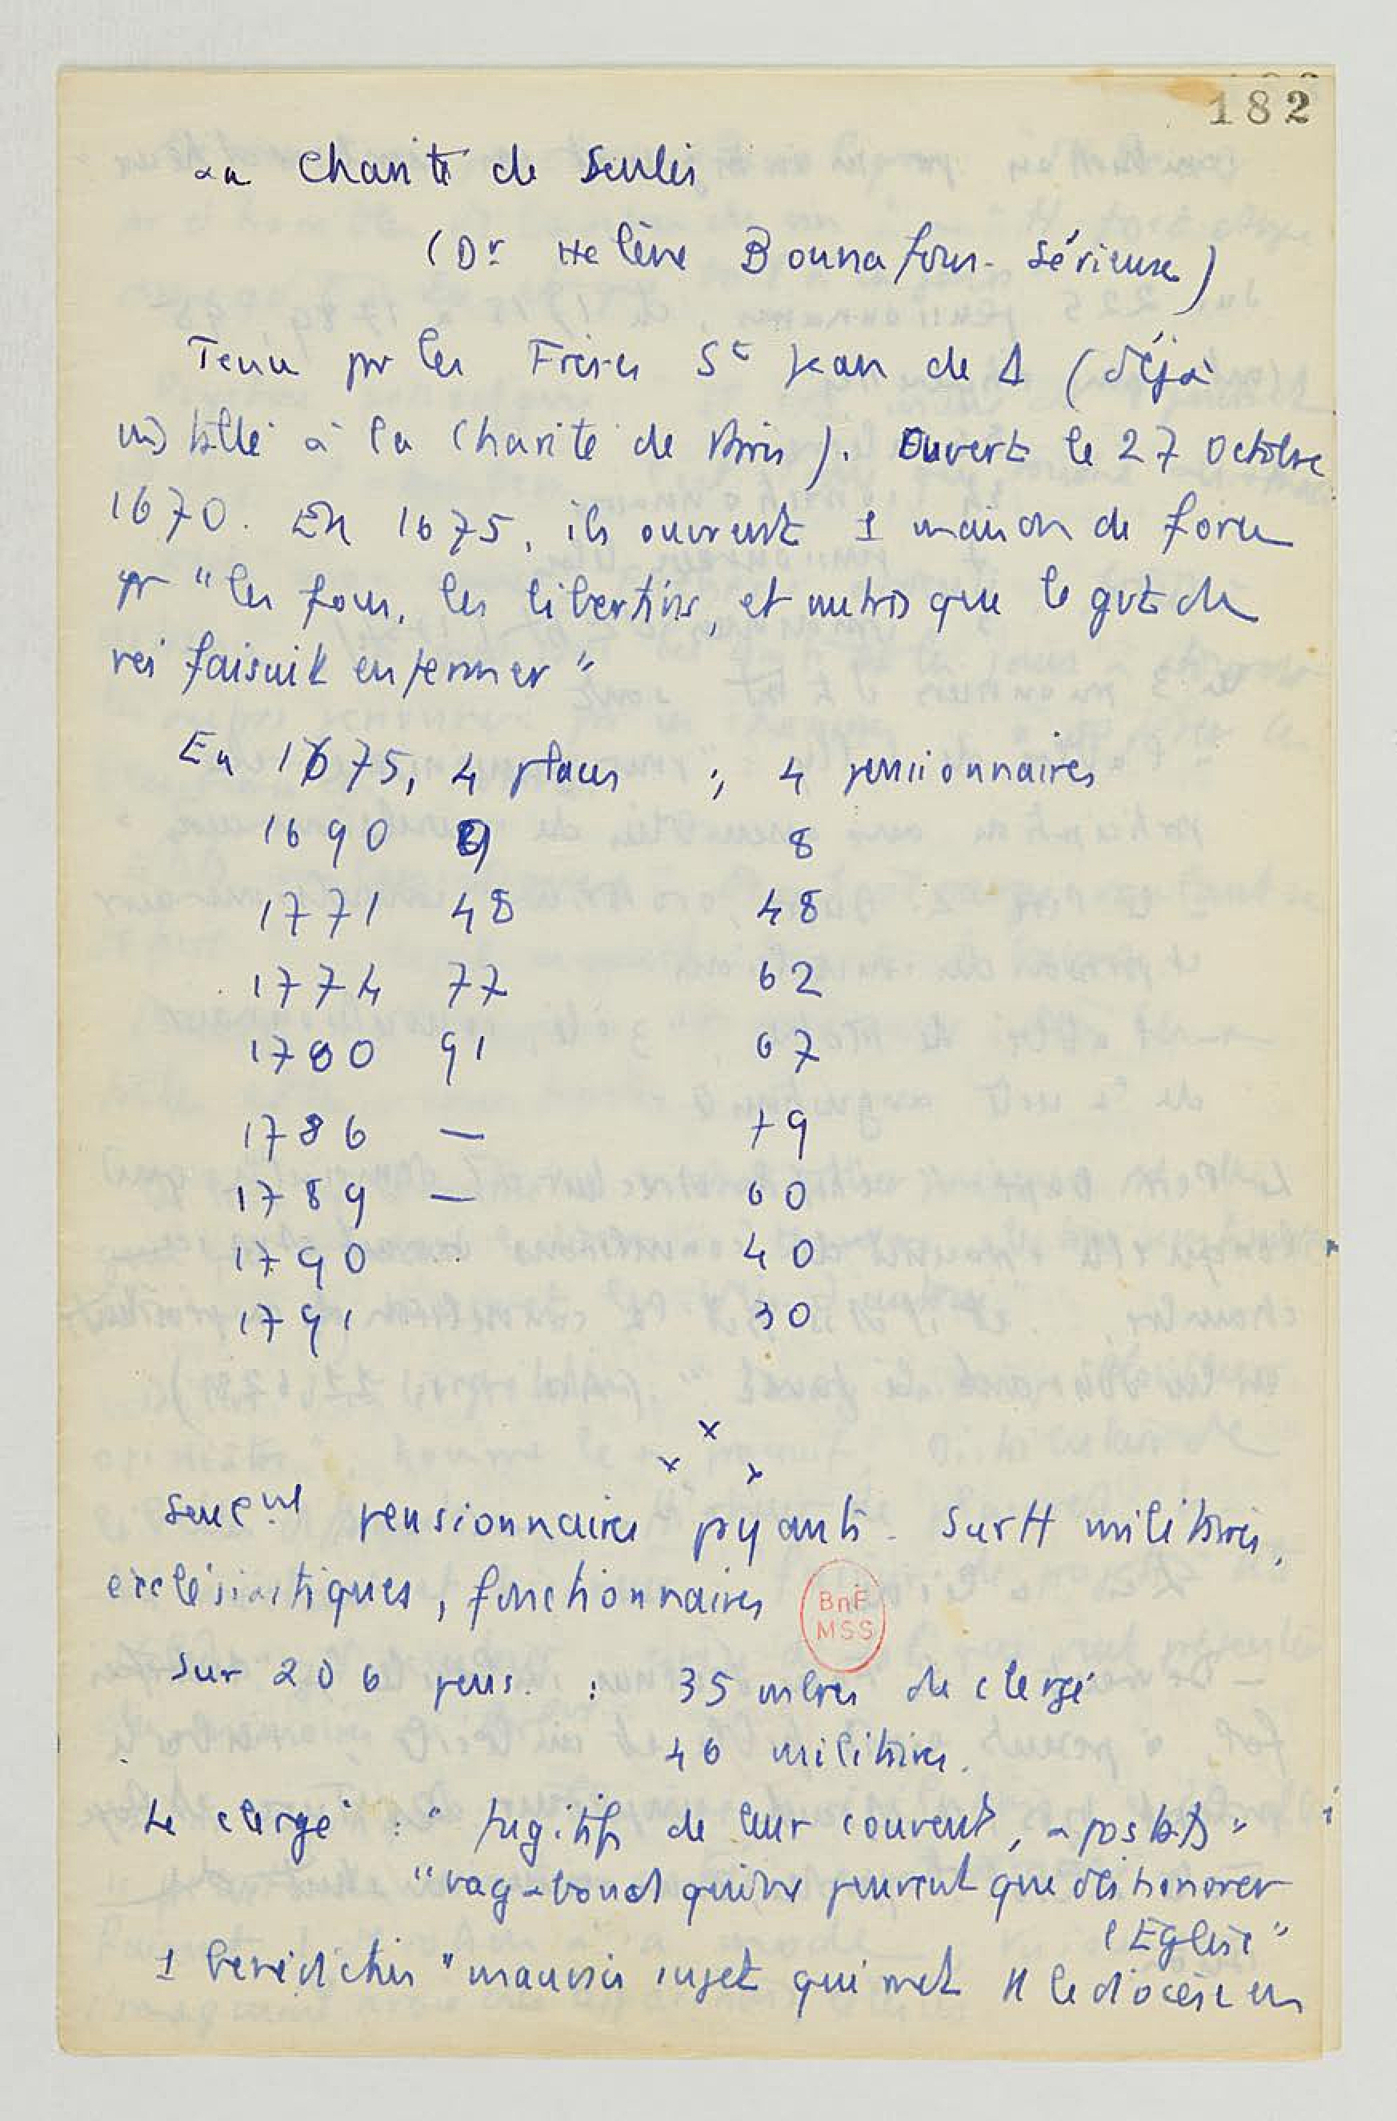 182
La Charité de Senlis
(Dr Hélène Bonnafous-Sérieux)
Tenu pr les Frères St Jean de Δ (déjà
installé à la Charité de Paris). Ouvert le 27 Octobre
1670. En 1675, ils ouvrent 1 maison de force
pr "les fous, les libertins, et autres que le gvt du
roi faisait enfermer"
En 1675, 4 places ; 4 pensionnaires
1690 9 8
1771 48 48
1774 77 62
1780 91 67
1786 — 79
1789 — 60
1790 40
1791 30
x
x x
Seulemt pensionnaires payants. Surtt militaires,
ecclésiastiques, fonctionnaires
BnF
MSS
Sur 206 pens. : 35 mbres du clergé
46 militaires.
Le clergé : "fugitifs de leur couvent, apostats"
"vagabond qui ne peuvent que déshonorer
l'Eglise"
1 bénédictin "mauvais sujet qui met tt le diocèse en